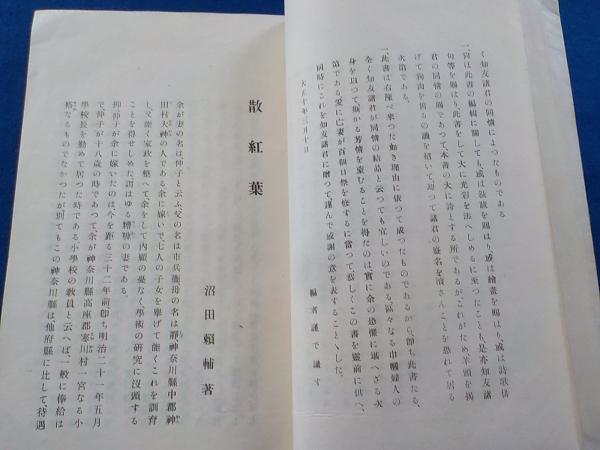 く知友諸君の同情によつたものである
一、尙ほ此書の編輯に關しても、或は祭祓を賜はり、或は繪畫を賜はり、或は詩歌俳
句等を賜はり、此書をして大に光彩を法へしめるに至つたことも、是亦知友諸
君の同情の賜であつて、本書の大に德とする所であるがこれがため羊頭を揭
げて狗肉を售るの譏を招いて、却つて諸君の臺名を瀆さんことを恐れて居る
次第である。
一、此書は右陳べ來つた如き理由に依つて成つたものであるから、卽ち此書たる、
全く知友諸君が同情の結晶と云つても宜しいのである。區々なる巾幗婦人の
身を以つて斯かる芳情を蒙むることを得たのは、實に余の恐懼に堪へざる次
第である。爰に亡妻が百個日祭を修するに當つて、恭しくこの書を靈前に供へ、
同時にこれを知友諸君に贈つて、謹んで感謝の意を表することゝした。
大正十年三月十日
編者謹で識す
散紅葉
沼田賴輔著
余が妻の名は仲子と云ふ、父の名は市兵衞、母の名は靜、神奈川縣中郡神
田村大神の人である。余に嫁いで七人の子女を擧げて、能くこれを訓育
し、又能く家政を整へて、余をして內顧の憂なく、學術の硏究に沒頭する
ことを得せしめた、謂はゆる糟糠の妻である。
抑、仲子が余に嫁いたのは、今を距る三十二年前、卽ち明治二十一年五月
で、仲子が十八歲の時であつて、余が神奈川縣高座郡寒川村一宮なる小
學校長を勤めて居つた時である。小學校の敎員と云へば、一般に俸給は
裕なるものでなかつたが、別てもこの神奈川縣は、他府縣に比して、待遇